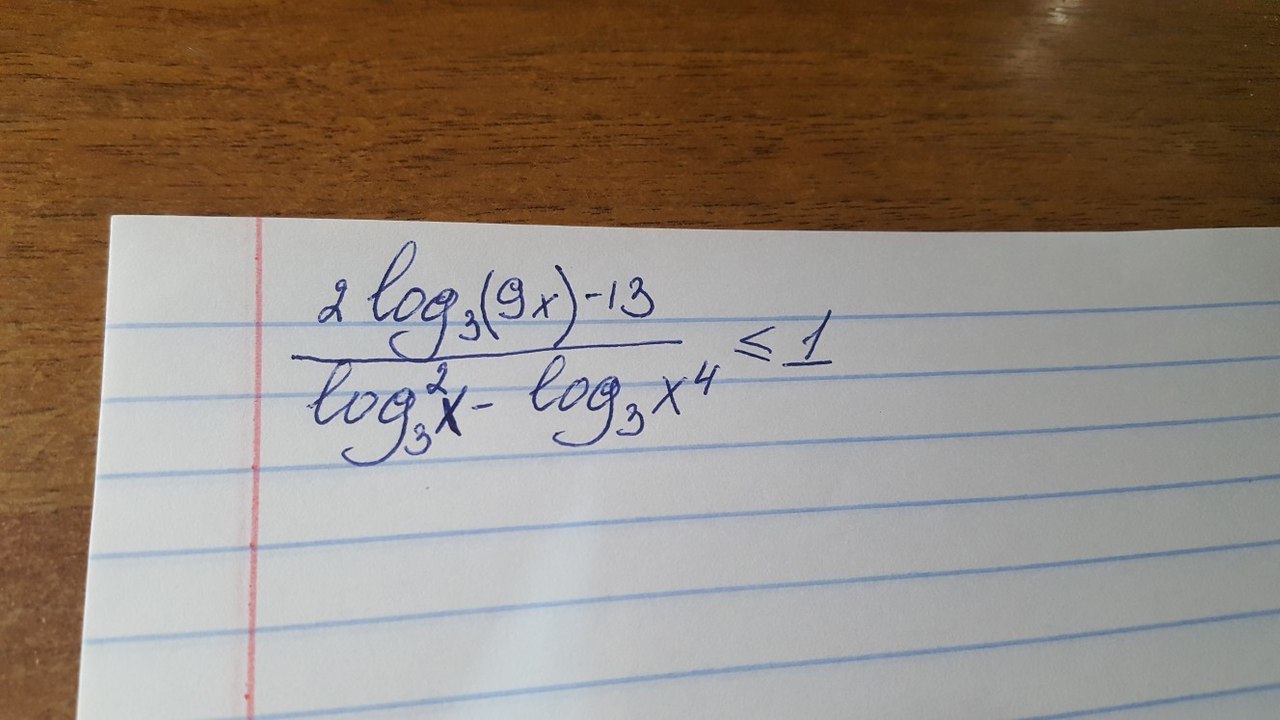 2 log₃(9x) - 13
log₃²x - log₃x⁴ ≤ 1